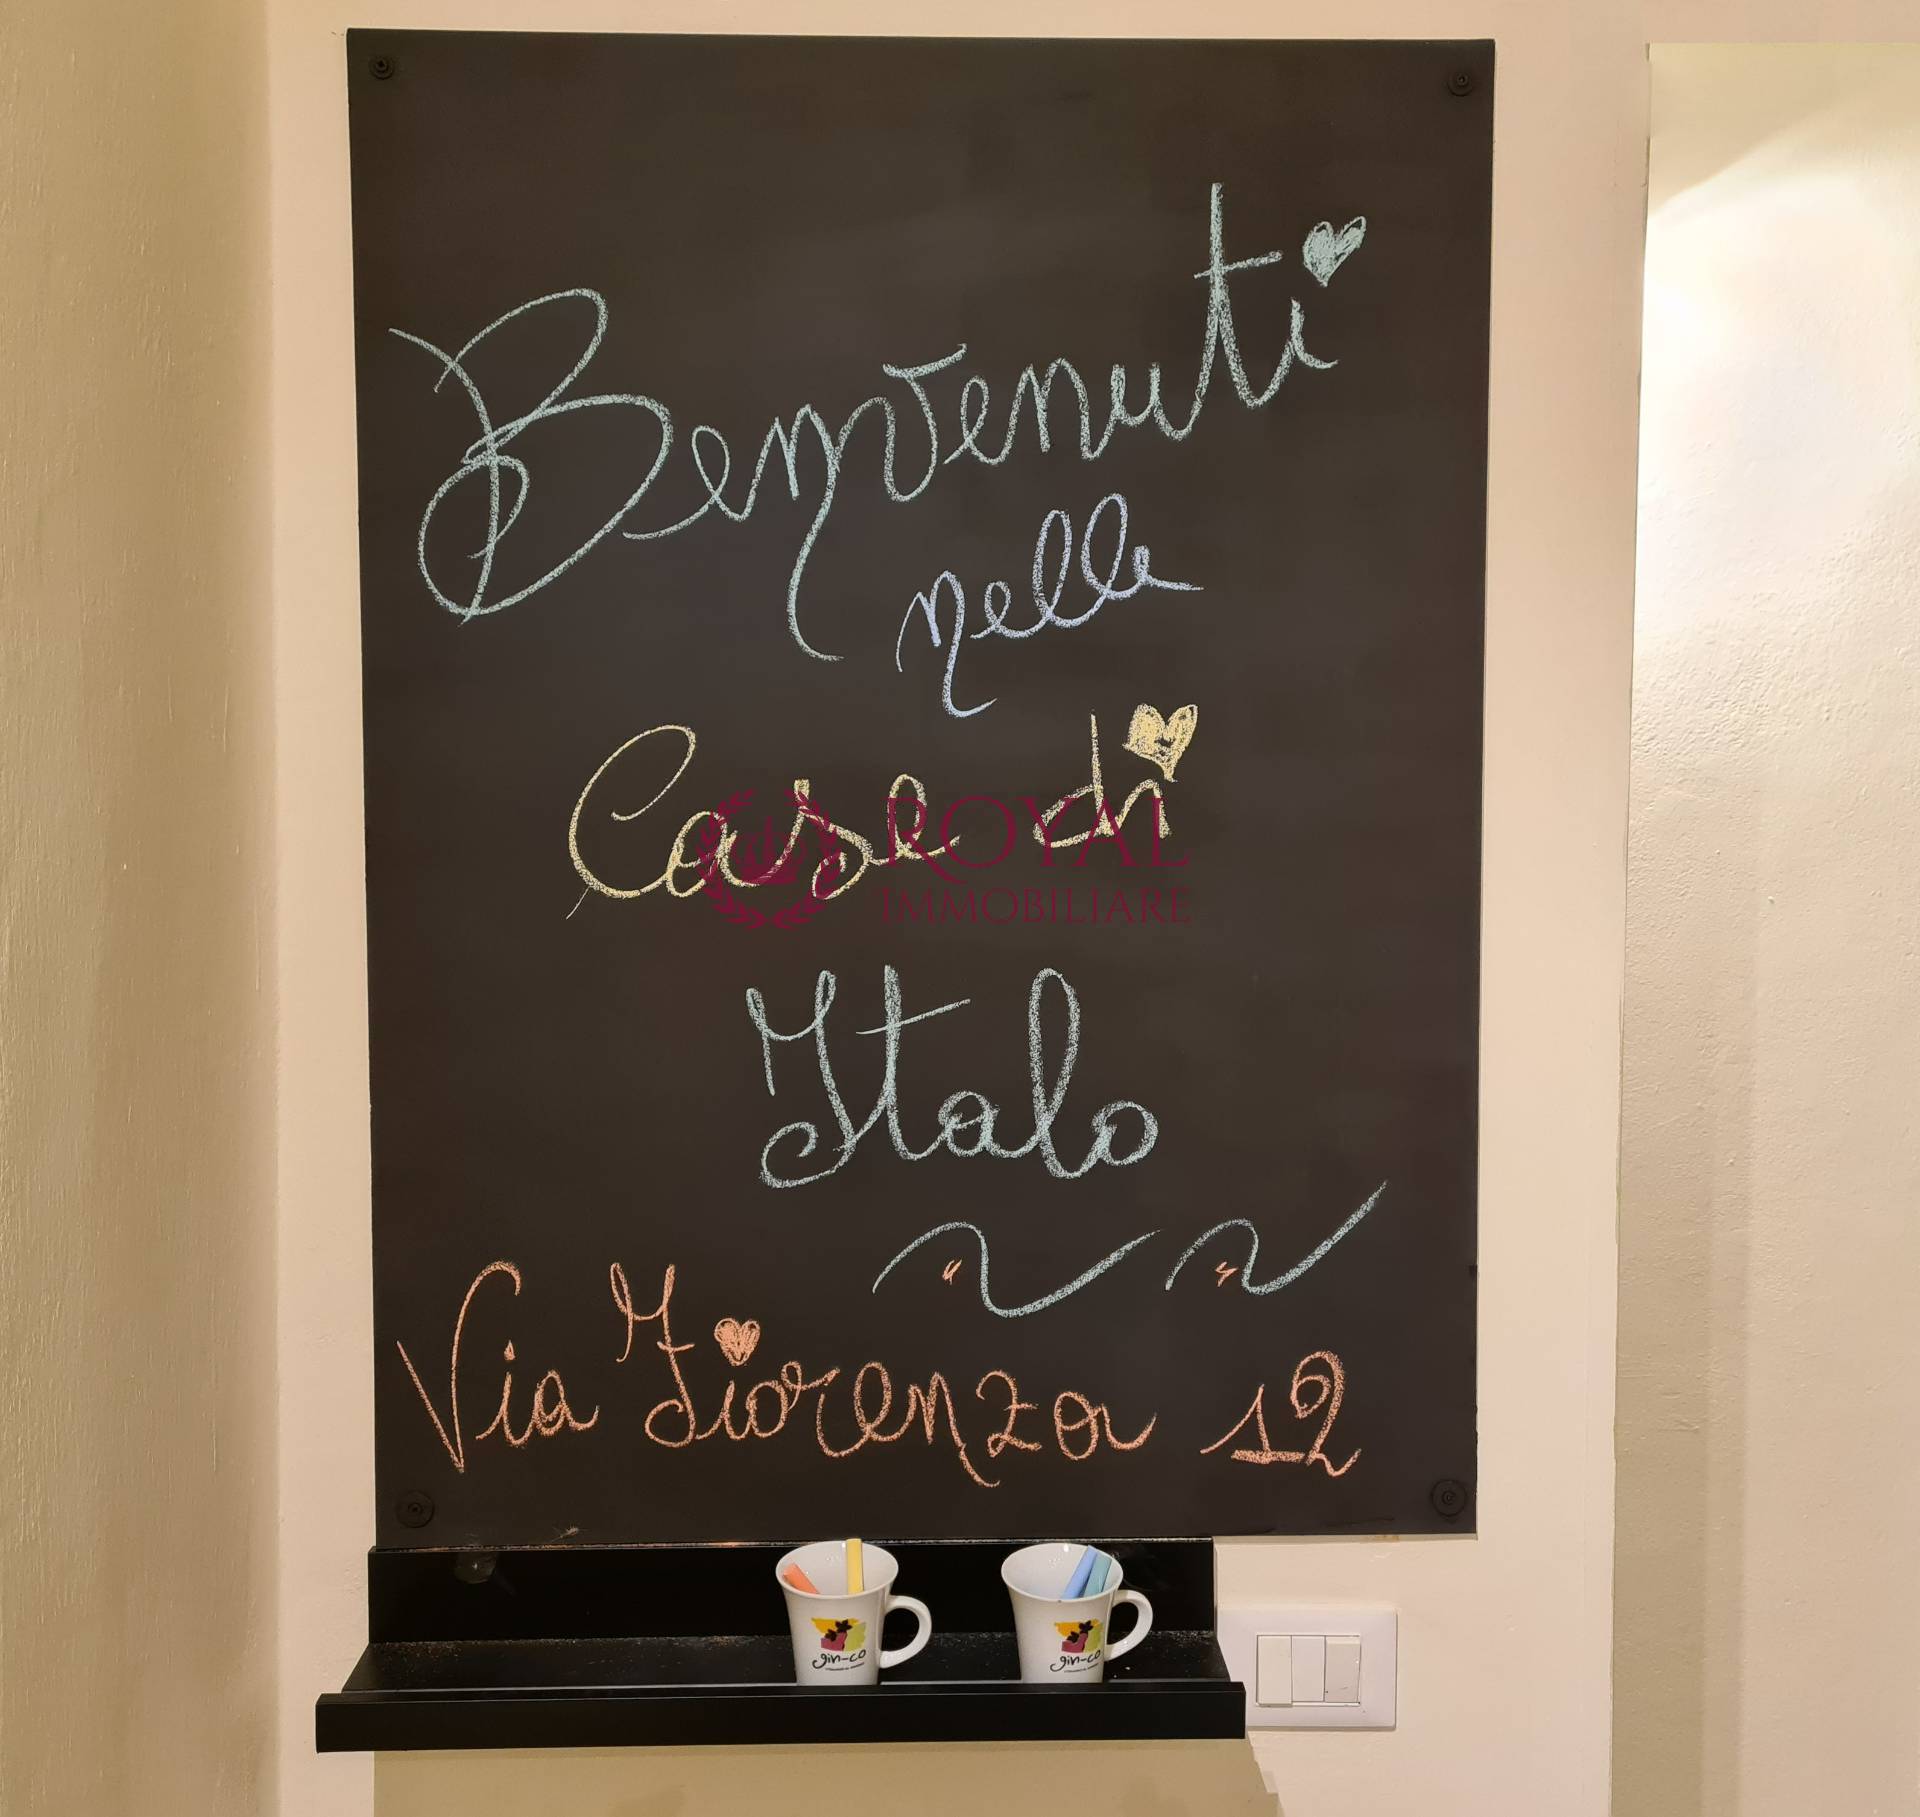 Benvenuti
nelle
Case di
ROYAL
IMMOBILIARE
Italo
Via Fiorenza 12
gin-co
gin-co